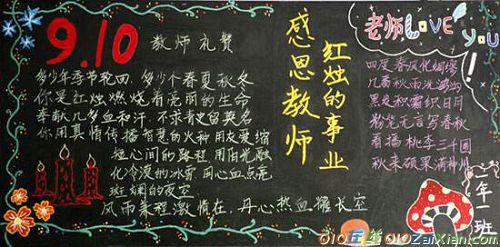 9.10
教师礼赞
多少年季节轮回,多少个春夏秋冬
你是红烛燃烧着亮丽的生命
奉献几多血和汗,不求青史留英名
你用真情传播智慧的火种 用友爱缩
短心间的路程 用阳光融
化冷漠的冰雪 用心血点亮
斑斓的夜空
风雨兼程激情在,丹心热血耀长空
感恩教师
红烛的事业
老师Love you!
四度春风化绸缪
几番秋雨洗鸿沟
黑发积霜织日月
粉笔无言写春秋
春播桃李三千圃
秋来硕果满神州
二年一班
ZaiXian.com